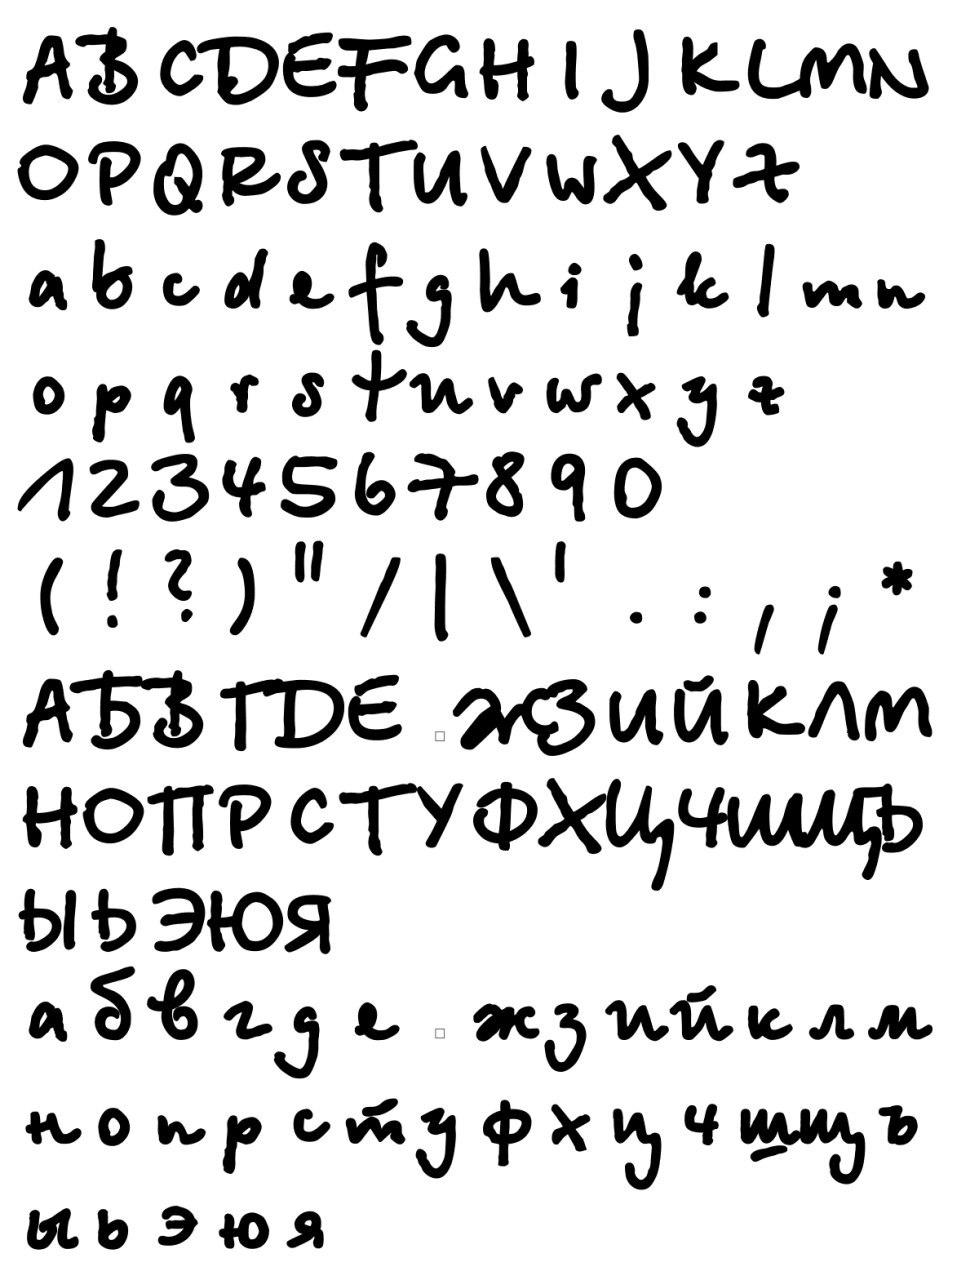 A B C D E F G H I J K L M N
O P Q R S T U V W X Y Z
a b c d e f g h i j k l m n
o p q r s t u v w x y z
1 2 3 4 5 6 7 8 9 0
( ! ? ) " / | \ ' . : , ; *
А Б В Г Д Е □ Ж З И Й К Л М
Н О П Р С Т У Ф Х Ц Ч Ш Щ Ъ
Ы Ь Э Ю Я
а б в г д е □ ж з и й к л м
н о п р с т у ф х ц ч ш щ ъ
ы ь э ю я